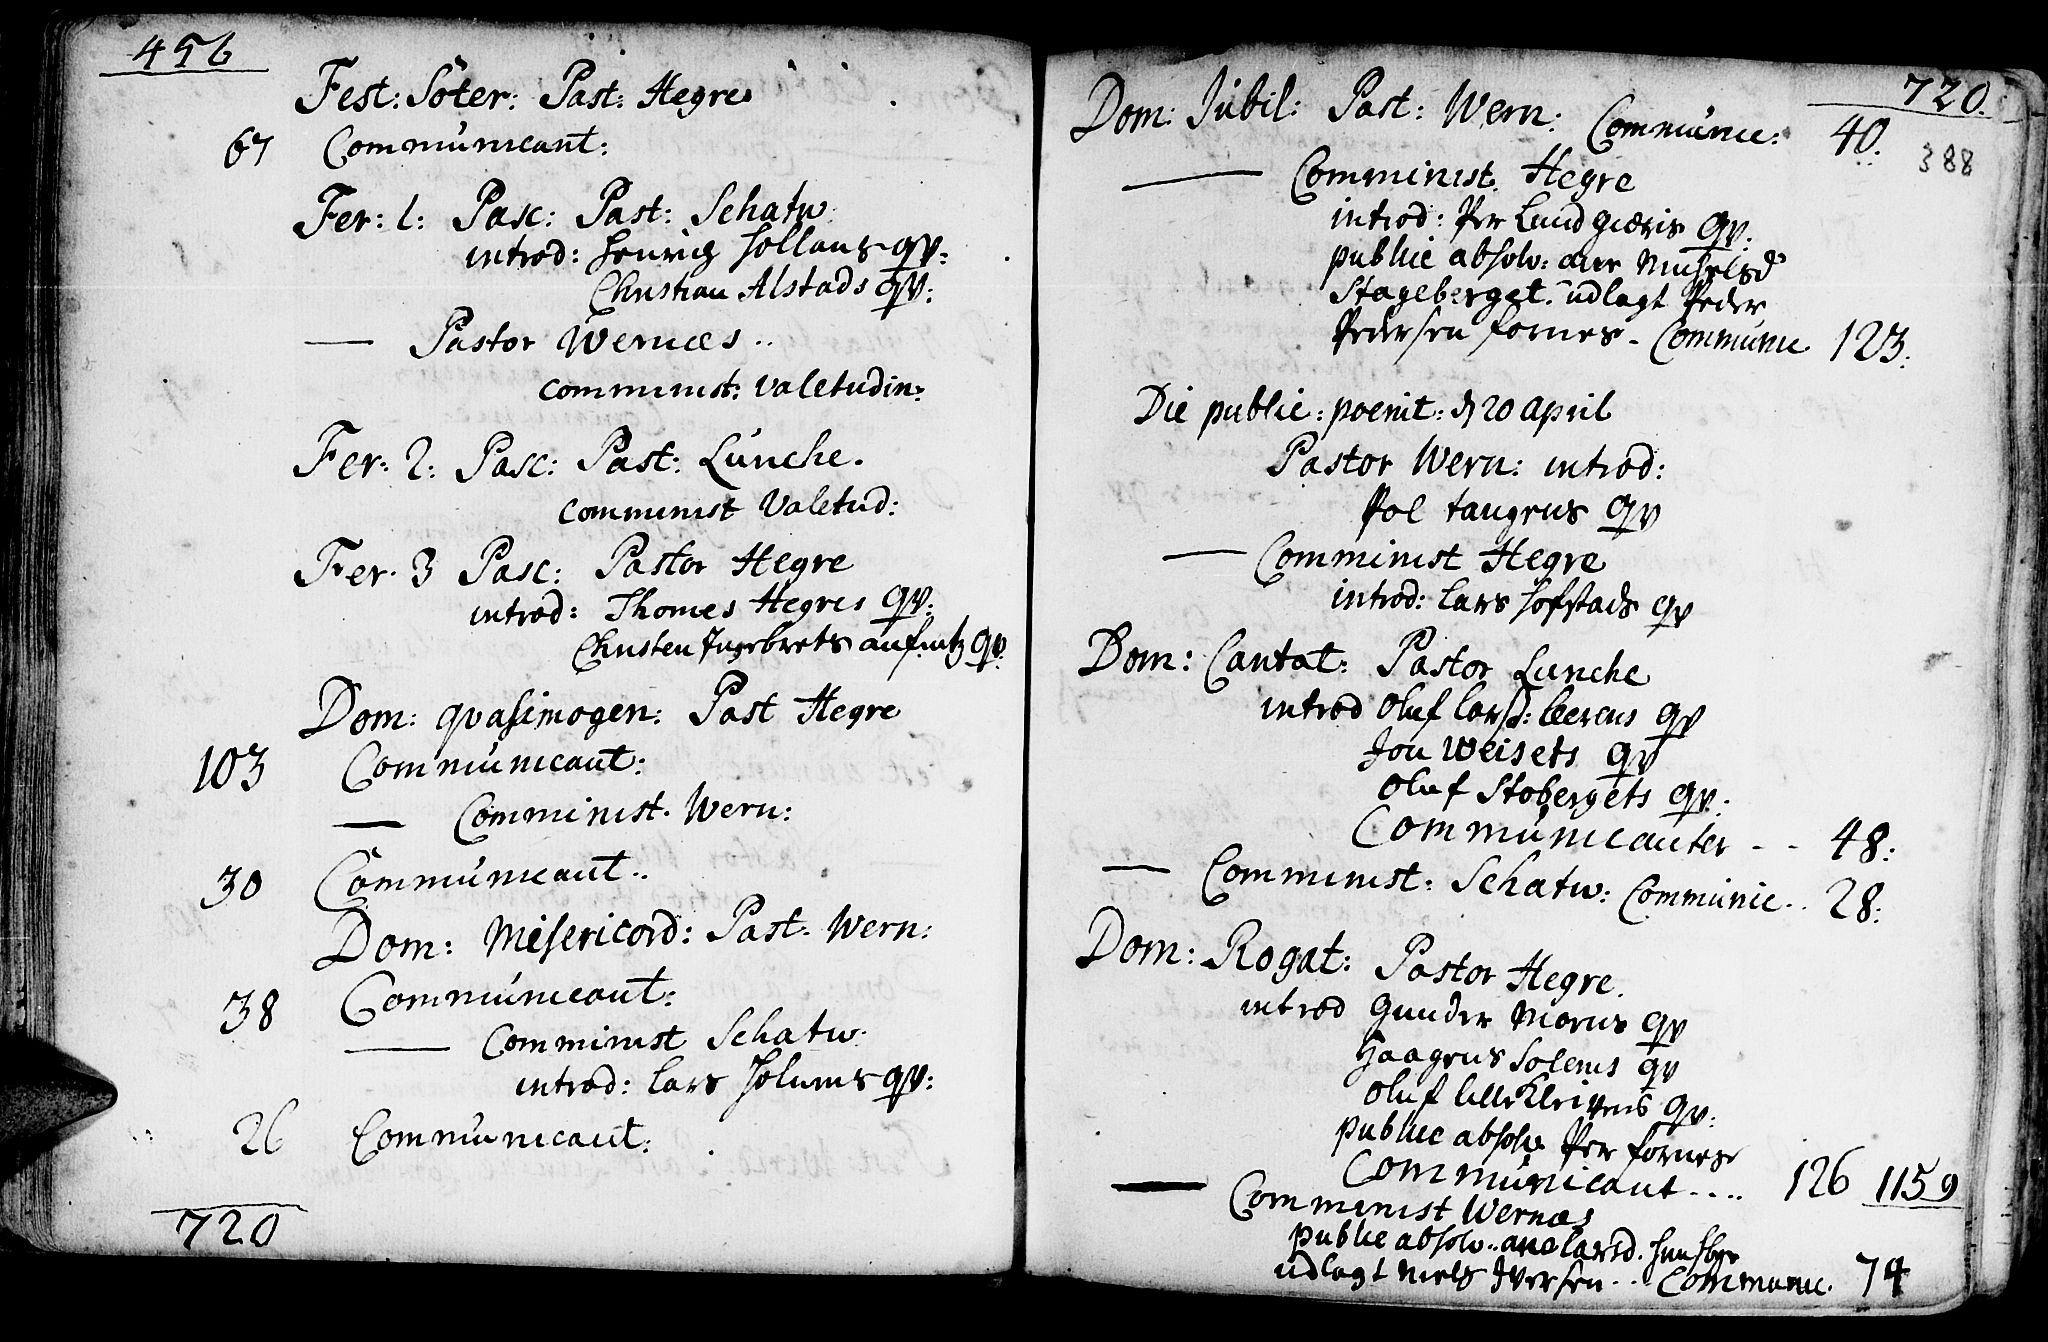 456
Fest: Söter: Past: Hegre
67 Communicant:
Fer: 1: Pasc: Past: Schatw:
introd: Henrich Hollans qv:
Christian Alstads qv:
— Pastor Wernæs ..
comminist: Valetudin:
Fer: 2: Pasc: Past: Lunche.
comminist Valetud:
Fer. 3 Pasc: Pastor Hegre
introd: Thomes Hegres qv:
Christen Ingebrets qv:
Dom: qvasimogen: Past Hegre
103 Communicant:
— Comminist. Wern:
30 Communicant..
Dom: Misericord: Past. Wern:
38 Communicant:
— Comminist Schatw:
introd: Lars Holums qv:
26 Communicant:
720
720.
Dom: Jubil: Past: Wern: Communic: 40.
388
— Comminist. Hegre
introd: Per qv:
public absolv:
Stageberget. udlagt Peder
Pedersen fornes - Communic 123.
Die public: poenit: d 20 April
Pastor Wern: introd:
Pol tangens qv
— Comminist Hegre
introd: Lars Hofstads qv
Dom: Cantat: Pastor Lunche
introd Oluf Larsd: leerens qv
Jon Weisets qv
Oluf Stobergets qv:
Communicanter - - 48:
— Comminist: Schatw: Communic.. 28:
Dom: Rogat: Pastor Hegre.
introd Gunder Morens qv
Haagens Solems qv
Oluf lilleKleivens qv:
public absolv Per fornes
Communicant.... 126 1159
— Comminist Wernæs
public absolv..
udlagt Niels Iversen.. Communic. 74